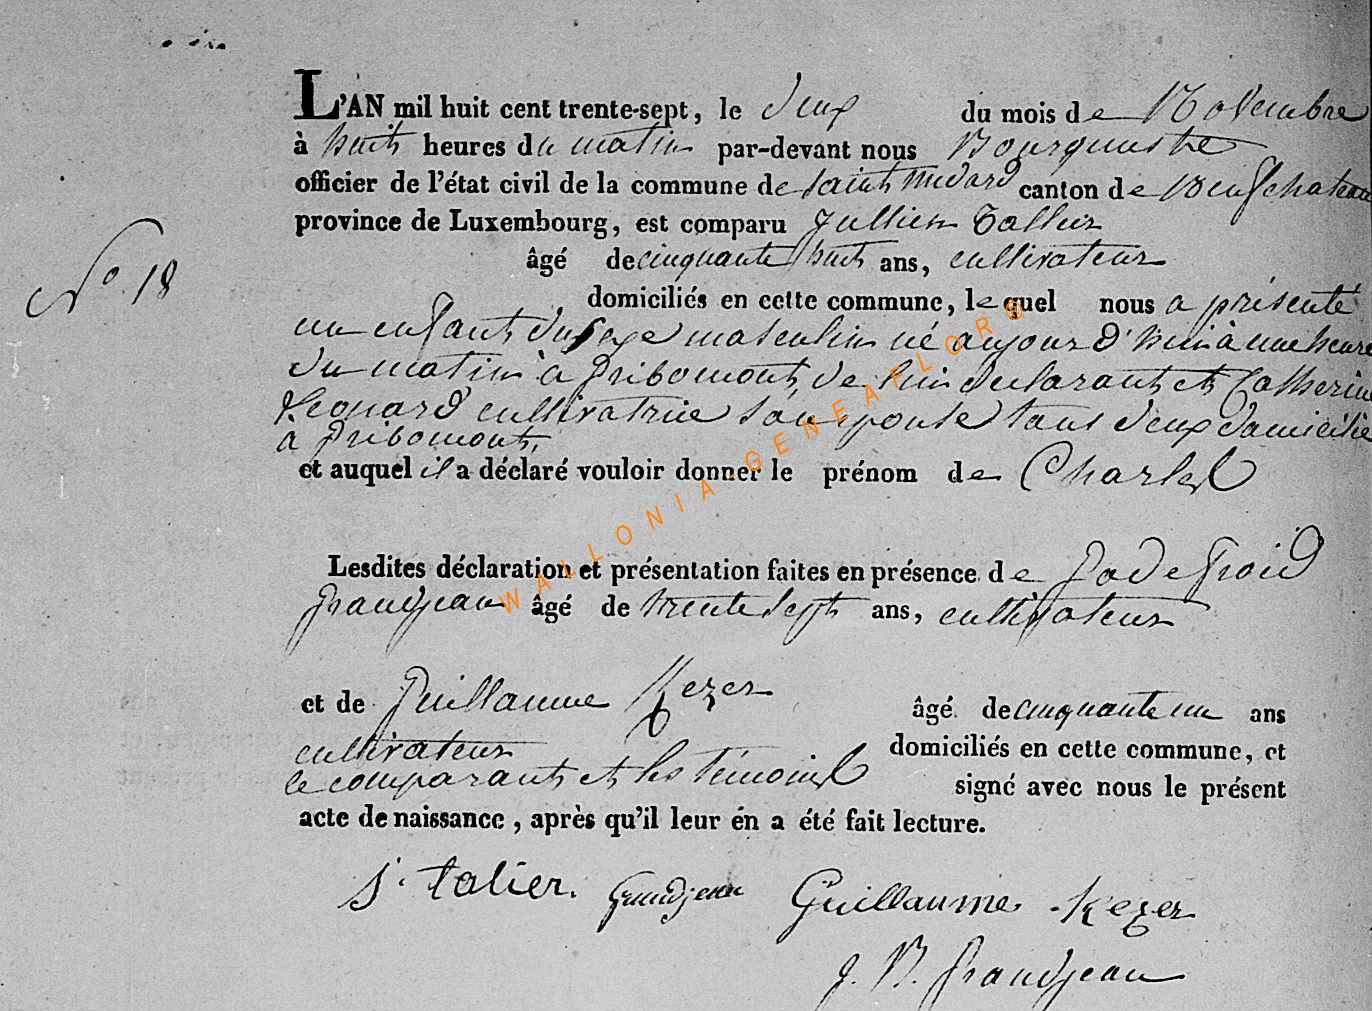 L'AN mil huit cent trente-sept, le deux du mois de Novembre
à huit heures du matin par-devant nous Bourguestre
officier de l'état civil de la commune de Saint Médard canton de Neufchateau
province de Luxembourg, est comparu Jullien Tallier
âgé de cinquante huit ans, cultivateur
N° 18
domiciliés en cette commune, lequel nous a présenté
un enfant du sexe masculin né aujour d'hui à une heure
du matin à Gribomont, de lui déclarant et Catherine
Léonard cultivatrice son épouse tous deux domicilié
à Gribomont,
et auquel il a déclaré vouloir donner le prénom de Charles
Lesdites déclaration et présentation faites en présence de Godefroid
Grandjean âgé de trente sept ans, cultivateur
et de Guillaume Kezer âgé de cinquante un ans
cultivateur domiciliés en cette commune, et
le comparant et les témoins signé avec nous le présent
acte de naissance, après qu'il leur en a été fait lecture.
j. talier. Grandjean Guillaume Kezer
J. N. Grandjean
WALLONIA-GENEAFLORE